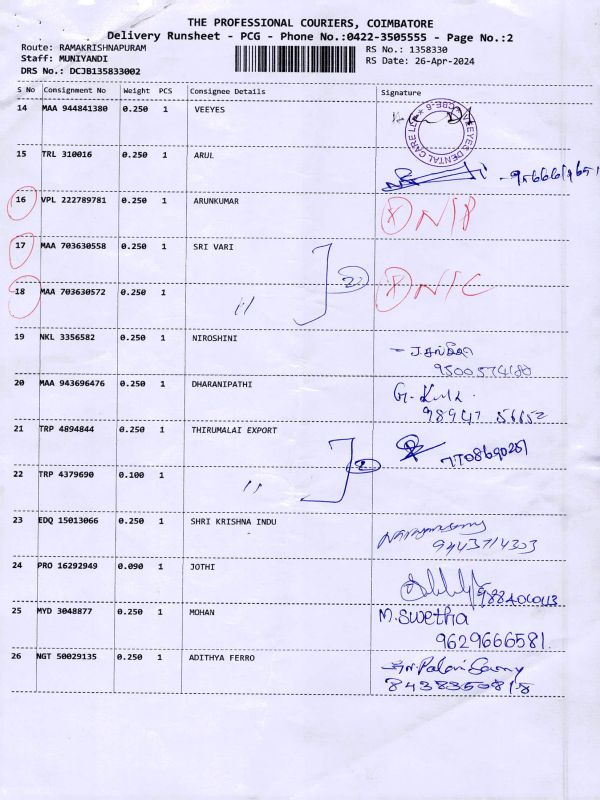 THE PROFESSIONAL COURIERS, COIMBATORE
Delivery Runsheet - PCG - Phone No.:0422-3505555 - Page No.:2
Route: RAMAKRISHNAPURAM RS No.: 1358330
Staff: MUNIYANDI RS Date: 26-Apr-2024
DRS No.: DCJB135833002
S No Consignment No Weight PCS Consignee Details Signature
14 MAA 944841380 0.250 1 VEEYES
VEEYES DENTAL CARE CBE-6
15 TRL 310016 0.250 1 ARUL
16 VPL 222789781 0.250 1 ARUNKUMAR
17 MAA 703630558 0.250 1 SRI VARI
2
18 MAA 703630572 0.250 1 11
19 NKL 3356582 0.250 1 NIROSHINI
20 MAA 943696476 0.250 1 DHARANIPATHI
98947 56652
21 TRP 4894844 0.250 1 THIRUMALAI EXPORT
2
22 TRP 4379690 0.100 1 11
23 EDQ 15013066 0.250 1 SHRI KRISHNA INDU
9443714303
24 PRO 16292949 0.090 1 JOTHI
25 MYD 3048877 0.250 1 MOHAN M. Swetha
9629666581.
26 NGT 50029135 0.250 1 ADITHYA FERRO
8438350818